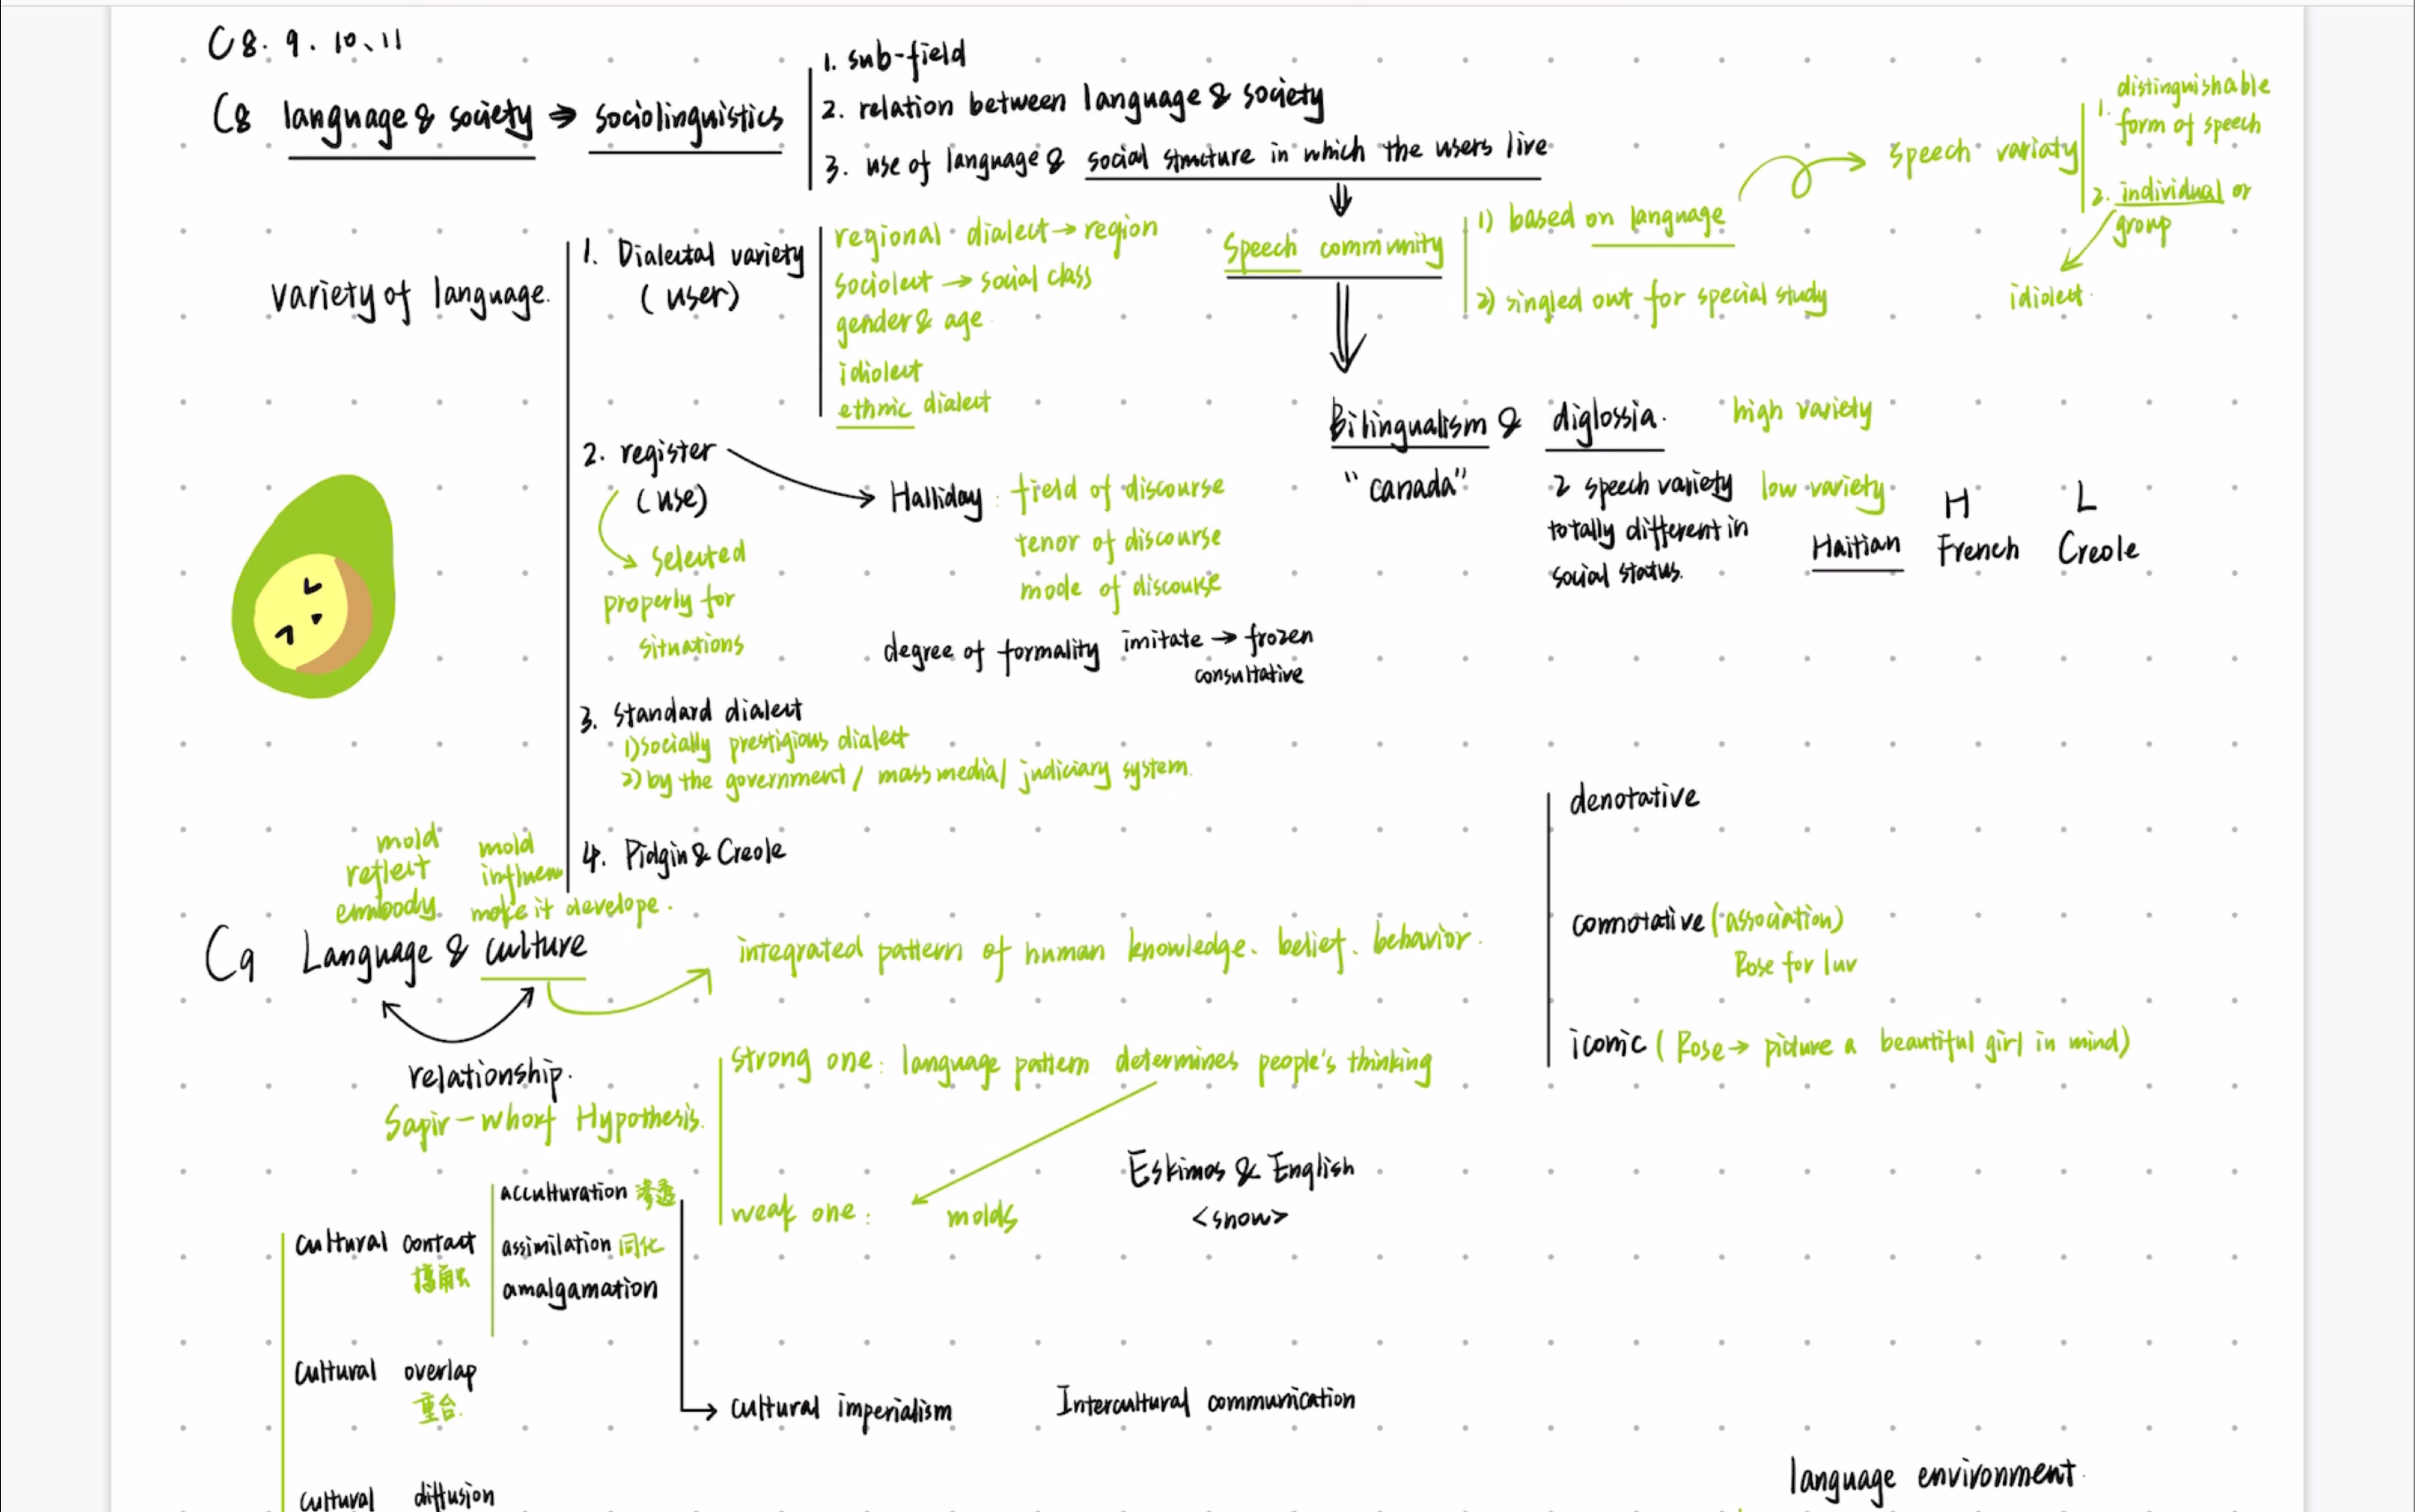 C8. 9. 10、11
C8 language & society → sociolinguistics
1. sub-field
2. relation between language & society
3. use of language & social structure in which the users live
speech community
1) based on language
2) singled out for special study
speech variaty
1. distinguishable
form of speech
2. individual or
group
idiolect.
Variety of language.
1. Dialectal variety
(user)
regional dialect → region
sociolect → social class
gender & age
idiolect
ethnic dialect
Bilingualism & diglossia.
"Canada"
2 speech variety
totally different in
social status.
high variety
low variety
H L
Haitian French Creole
2. register
(use)
selected
properly for
situations
Halliday: field of discourse
tenor of discourse
mode of discourse
degree of formality imitate → frozen
consultative
3. Standard dialect
1) socially prestigious dialect
2) by the government / mass media / judiciary system.
4. Pidgin & Creole
denotative
connotative (association)
Rose for luv
iconic (Rose → picture a beautiful girl in mind)
mold
reflect
embody
mold
influen
make it develope.
C9 Language & culture
integrated pattern of human knowledge、belief、behavior.
relationship.
Sapir-Whorf Hypothesis.
strong one: language pattern determines people's thinking
weak one: molds
Eskimos & English
<snow>
cultural contact
acculturation 渗透
assimilation 同化
amalgamation
cultural overlap
重合.
cultural imperialism
Intercultural communication
cultural diffusion
language environment